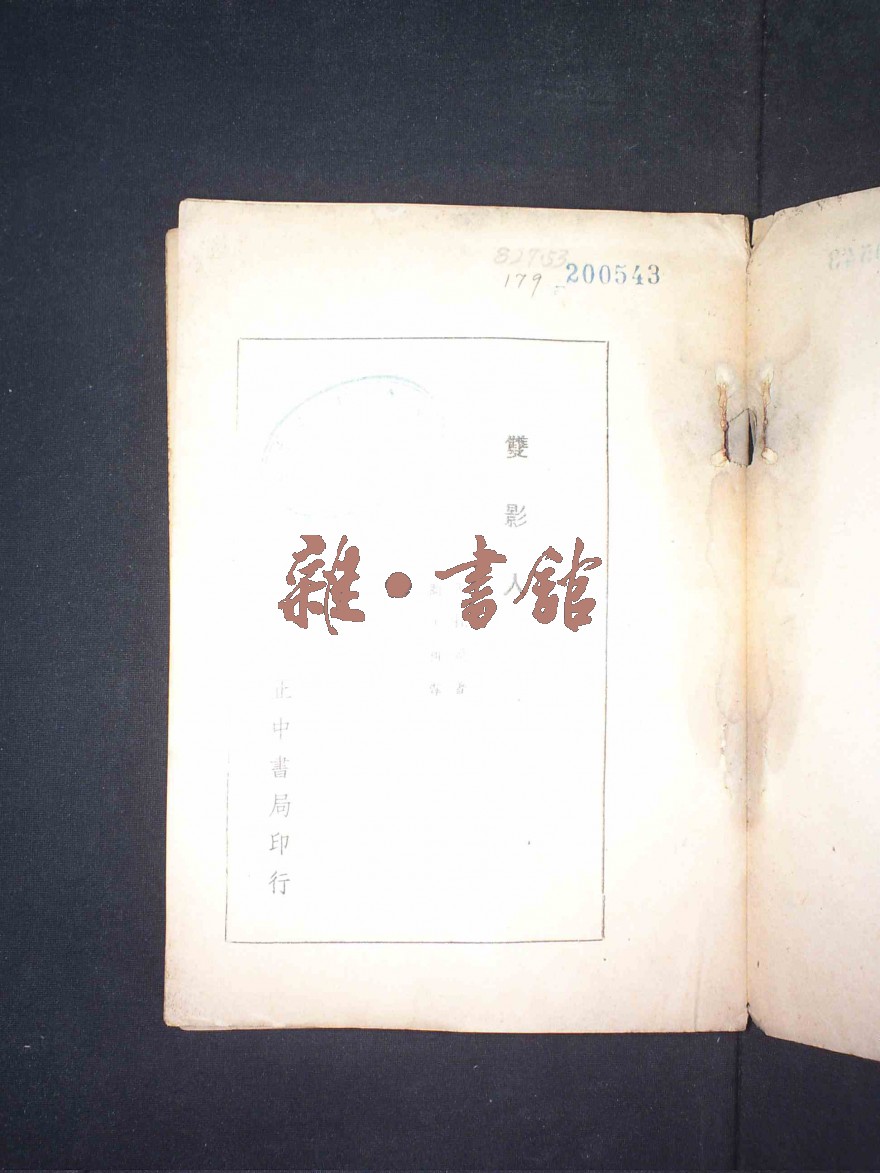 827.53
179
200543
雙影人
正中書局印行
雜·書館